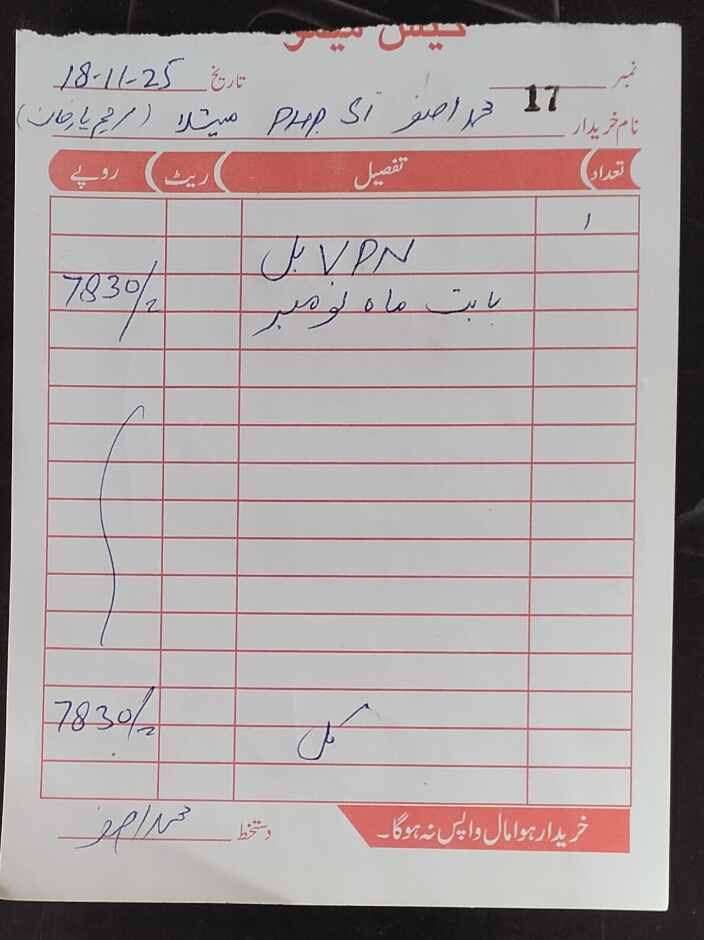 کیش میمو
نمبر 17 تاریخ 18-11-25
نام خریدار محمد اصغر SI PHP میتلا (رحیم یار خان)
تعداد تفصیل ریٹ روپے
1
VPN بل
بابت ماہ نومبر 7830/=
کل 7830/=
خریدا ہوا مال واپس نہ ہوگا۔ دستخط محمد اصغر